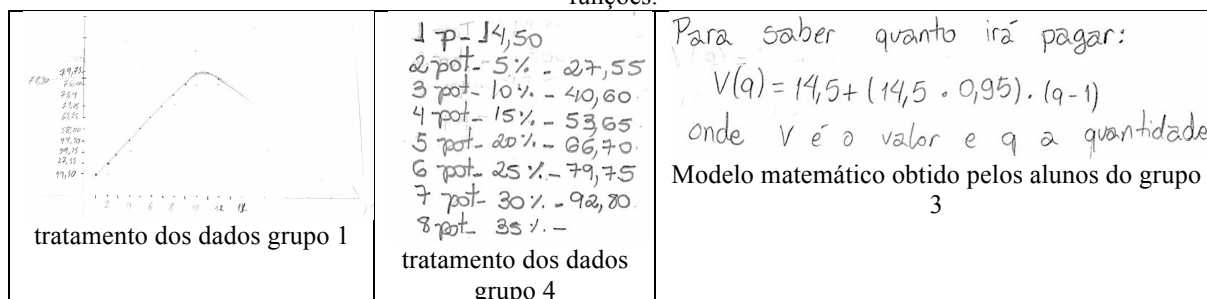 funções.
79,75
78,30
14,50
tratamento dos dados grupo 1
1 p- 14,50
2 pot- 5% - 27,55
3 pot- 10% - 40,60
4 pot- 15% - 53,65
5 pot- 20% - 66,70
6 pot- 25% - 79,75
7 pot- 30% - 92,80
8 pot- 35% -
tratamento dos dados
grupo 4
Para saber quanto irá pagar:
V(q) = 14,5 + (14,5 . 0,95) . (q - 1)
onde V é o valor e q a quantidade
Modelo matemático obtido pelos alunos do grupo
3